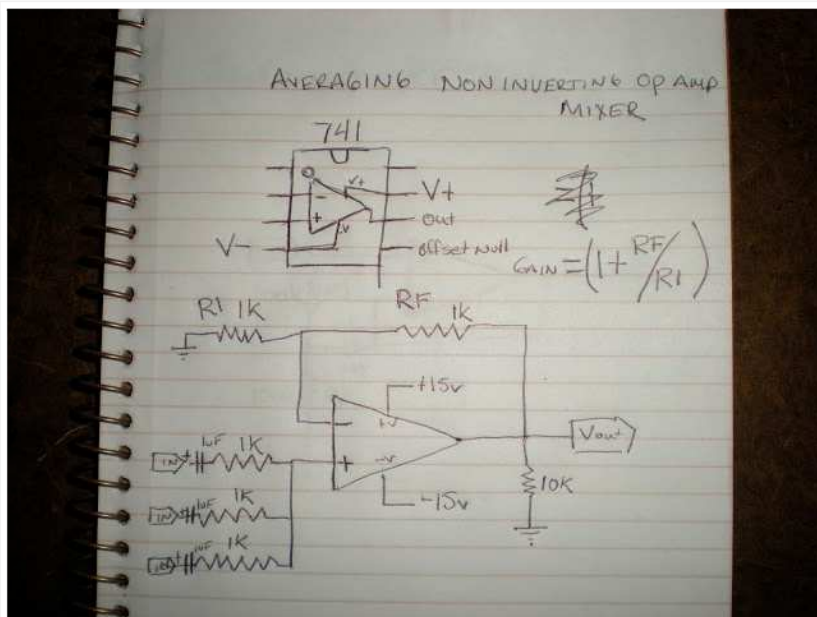 AVERAGING NON INVERTING OP AMP
MIXER
741
V+
- V+
+ Out
-V
V- Offset Null
GAIN = (1 + RF/R1)
R1 1K RF 1K
+15v
+V
-
IN + 1uF 1K + Vout
-V
10K
-15v
IN + 1uF 1K
IN + 1uF 1K